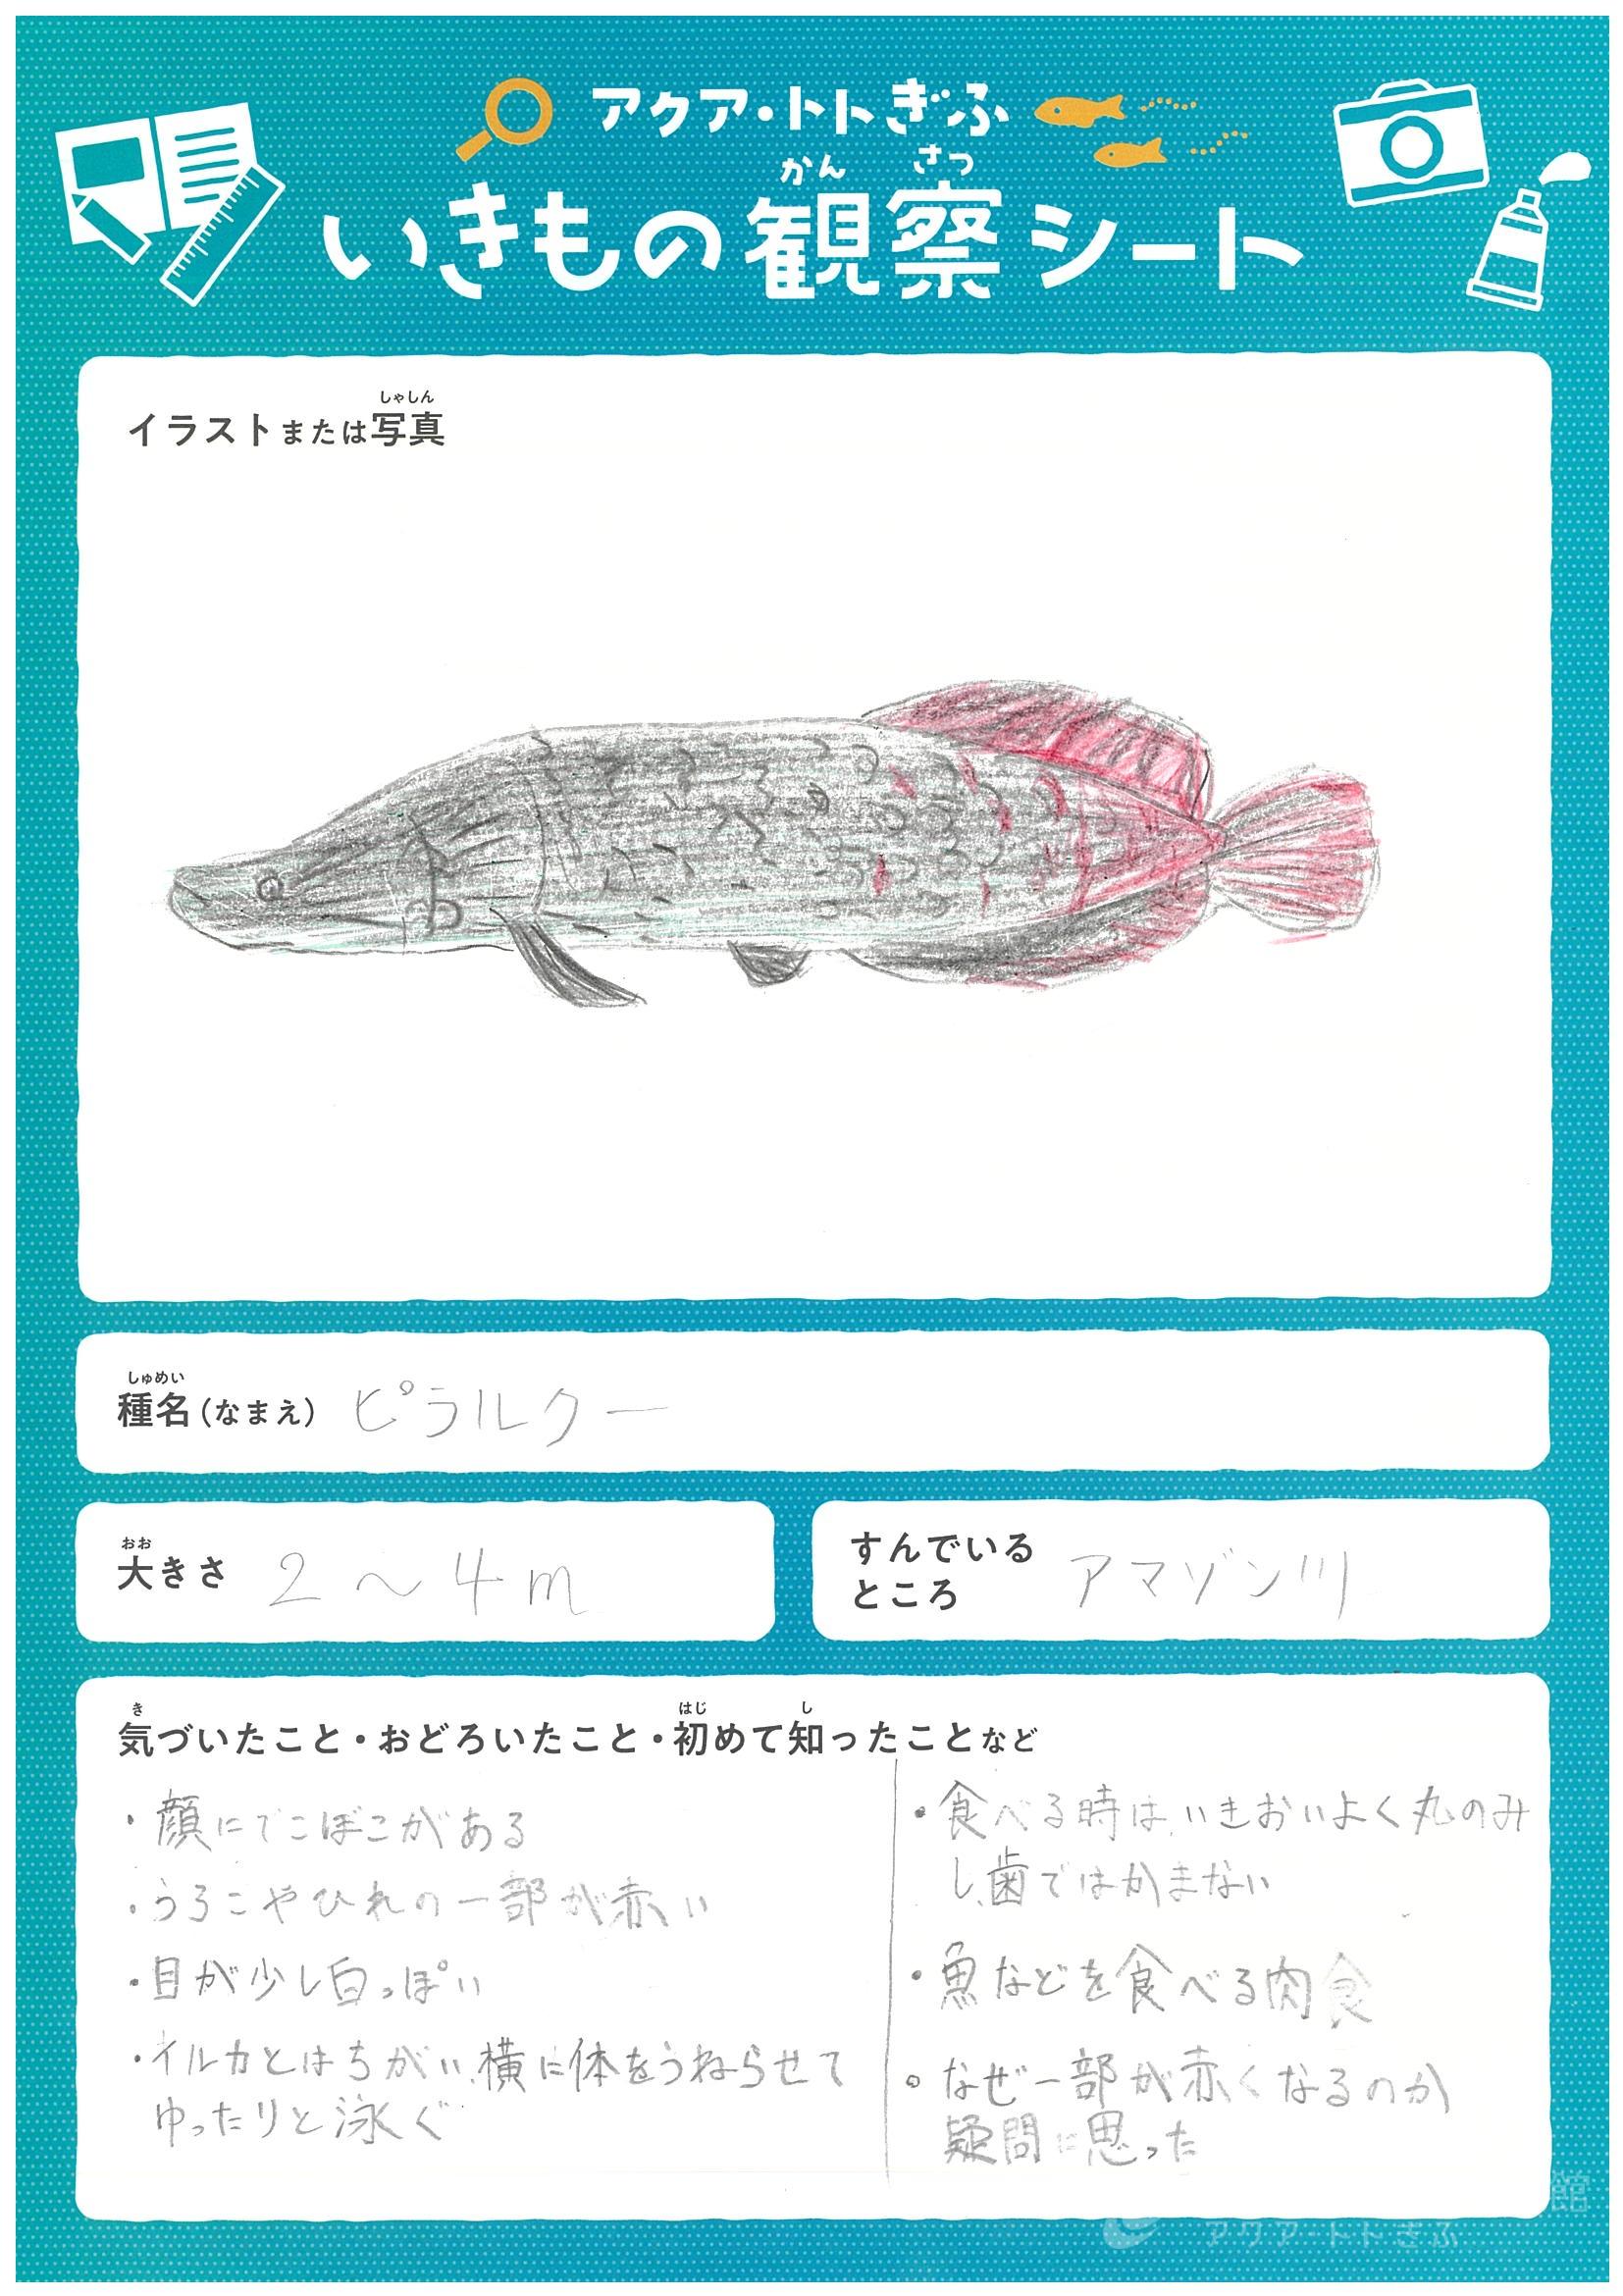 アクア・トトぎふ
かん さつ
いきもの観察シート
しゃしん
イラストまたは写真
しゅめい
種名(なまえ) ピラルクー
おお
大きさ 2〜4m
すんでいる
ところ アマゾン川
き はじ し
気づいたこと・おどろいたこと・初めて知ったことなど
・顔にでこぼこがある
・うろこやひれの一部が赤い
・目が少し白っぽい
・イルカとはちがい、横に体をうねらせて
ゆったりと泳ぐ
・食べる時は、いきおいよく丸のみ
し、歯ではかまない
・魚などを食べる肉食
・なぜ一部が赤くなるのか
疑問に思った
館
アクア・トトぎふ